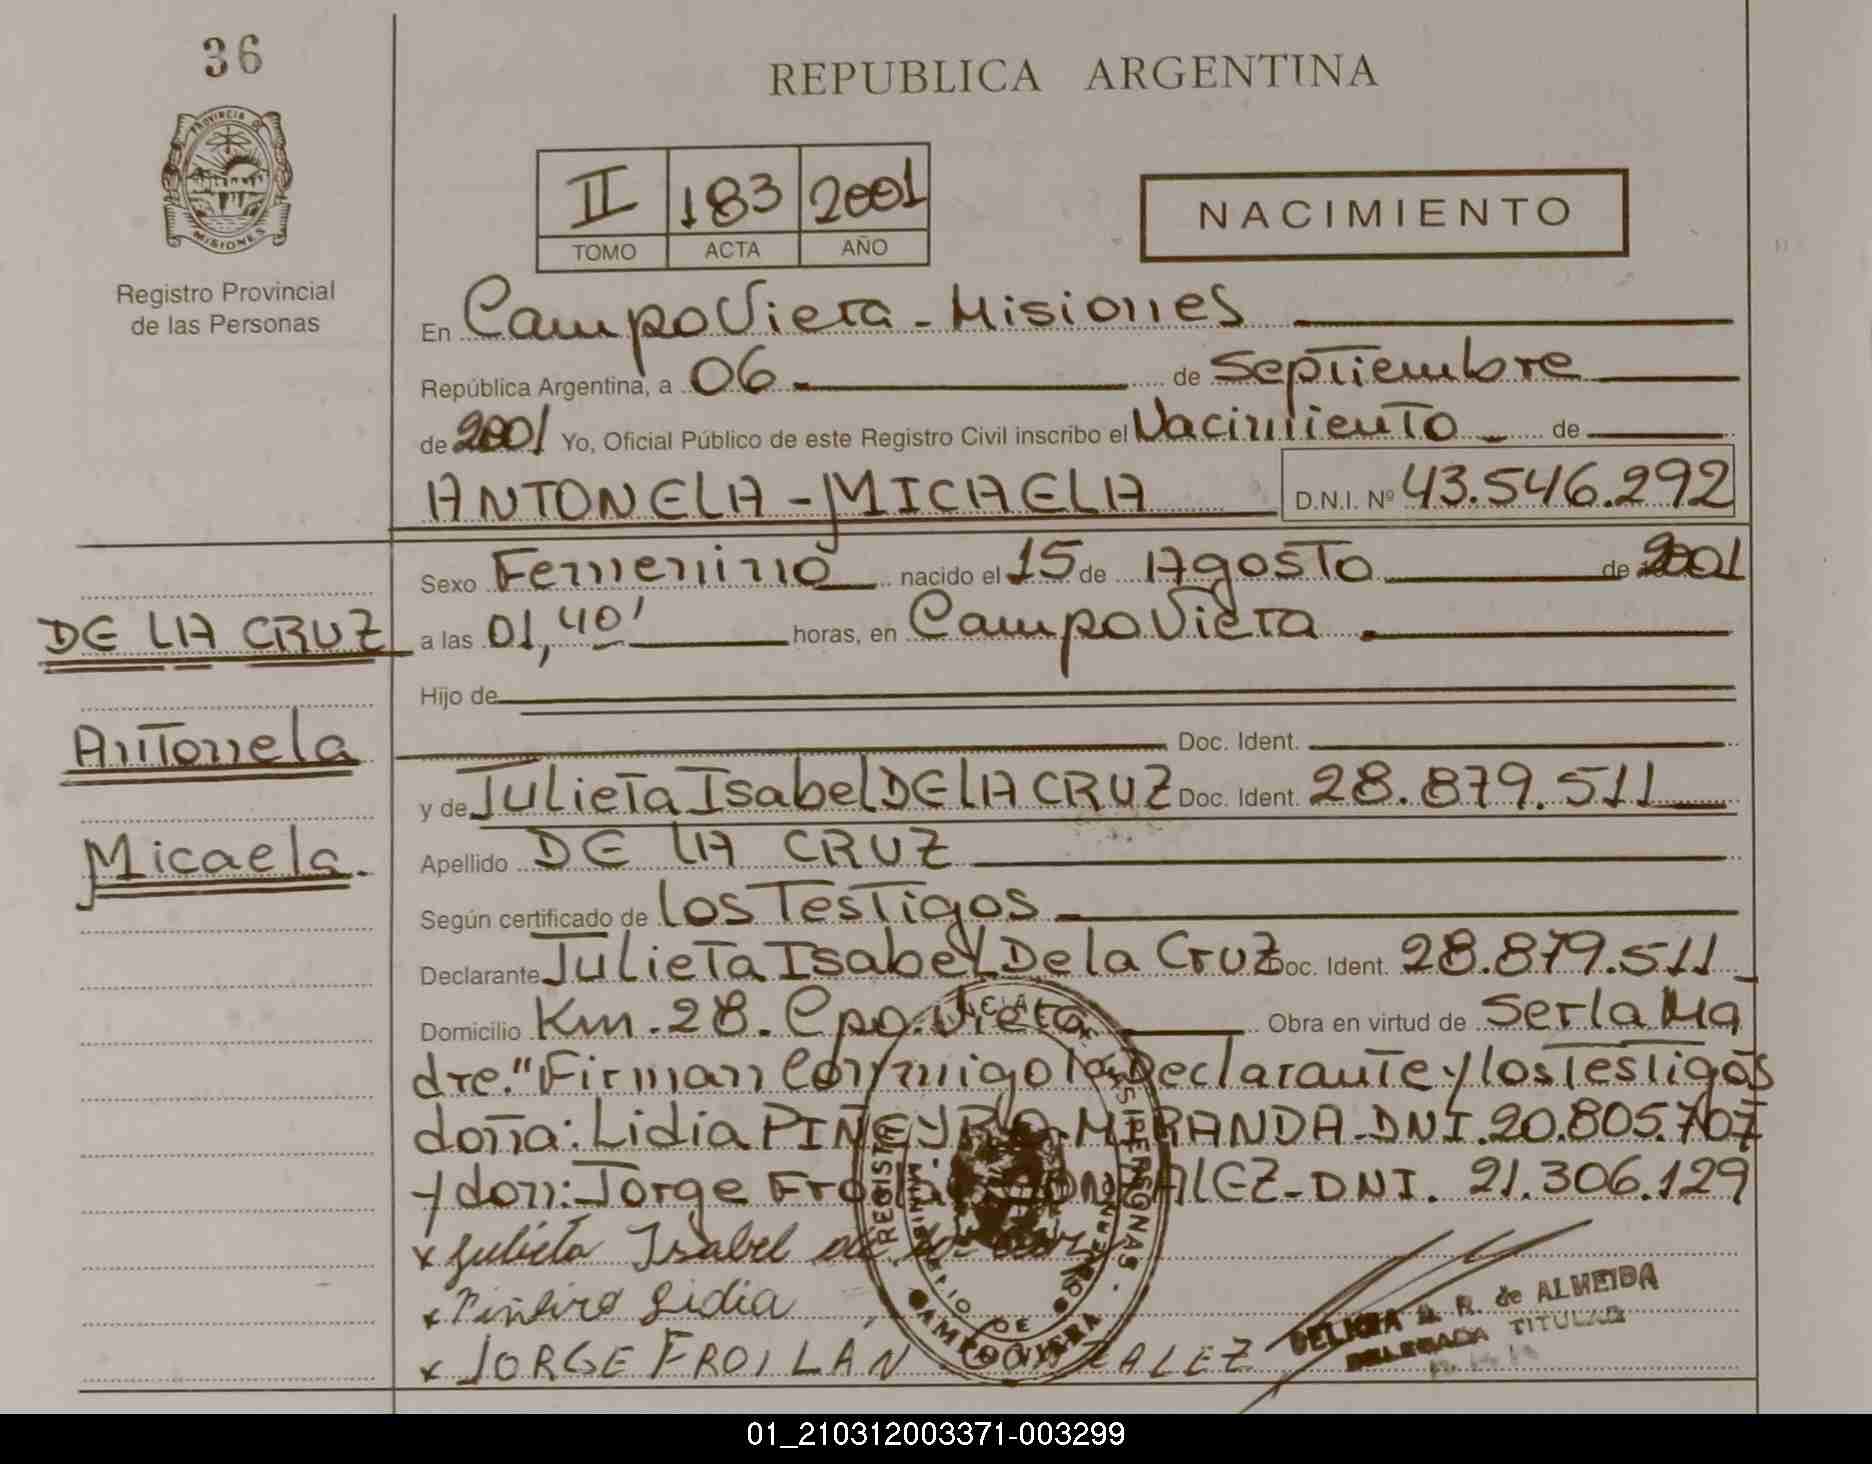 36
REPUBLICA ARGENTINA
PROVINCIA D
MISIONES
Registro Provincial
de las Personas
II 183 2001
TOMO ACTA AÑO
NACIMIENTO
En Campo Viera - Misiones
República Argentina, a 06 de Septiembre
de 2001 Yo, Oficial Público de este Registro Civil inscribo el Nacimiento de
ANTONELA - MICAELA D.N.I. Nº 43.546.292
Sexo Femenino nacido el 15 de Agosto de 2001
DE LA CRUZ
a las 01,40' horas, en Campo Viera
Hijo de
Antonela
Doc. Ident.
y de Julieta Isabel DE LA CRUZ Doc. Ident. 28.879.511
Micaela.
Apellido DE LA CRUZ
Según certificado de los Testigos
Declarante Julieta Isabel De la Cruz Doc. Ident. 28.879.511
Domicilio Km. 28. Cpo. Viera Obra en virtud de Ser la Ma
dre." Firman Conmigo la Declarante y los Testigos
doña: Lidia PIÑEYRO MIRANDA - DNI. 20.805.707
y don: Jorge Froilán GONZALEZ - DNI. 21.306.129
x Julieta Isabel de la Cruz
x Piñeiro Lidia
x JORGE FROILLÁN GONZALEZ
REGISTRO PERSONAS
CAMPO VIERA
R. de ALMEIDA
DELEGADA TITULAR
01_210312003371-003299